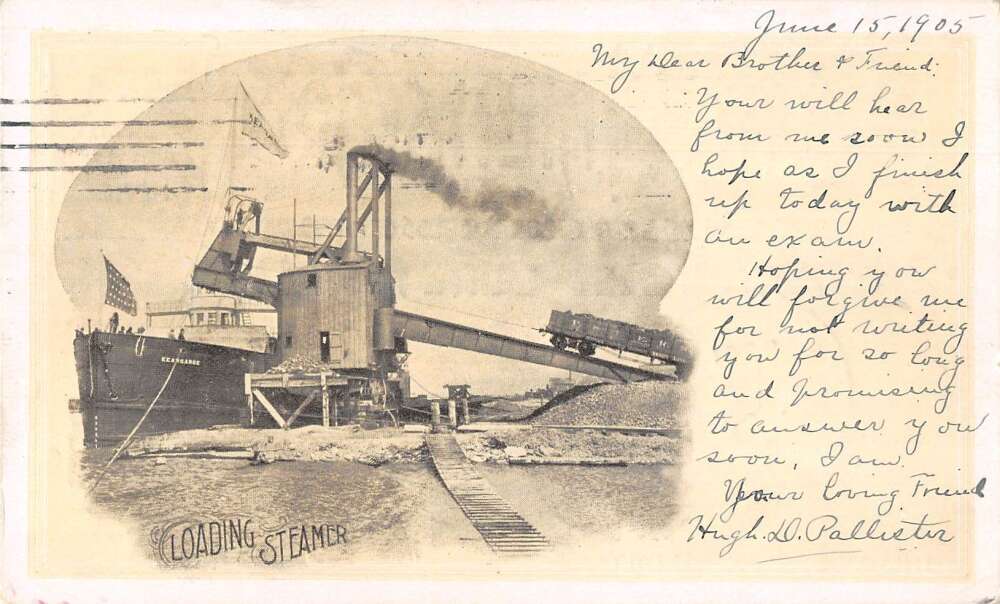 June 15, 1905
My Dear Brother & Friend:
Your will hear
from me soon I
hope as I finish
up today with
an exam.
Hoping you
will forgive me
for not writing
you for so long
and promising
to answer you
soon, I am.
Your loving Friend
Hugh. D. Pallister
KEARSARGE
LOADING STEAMER